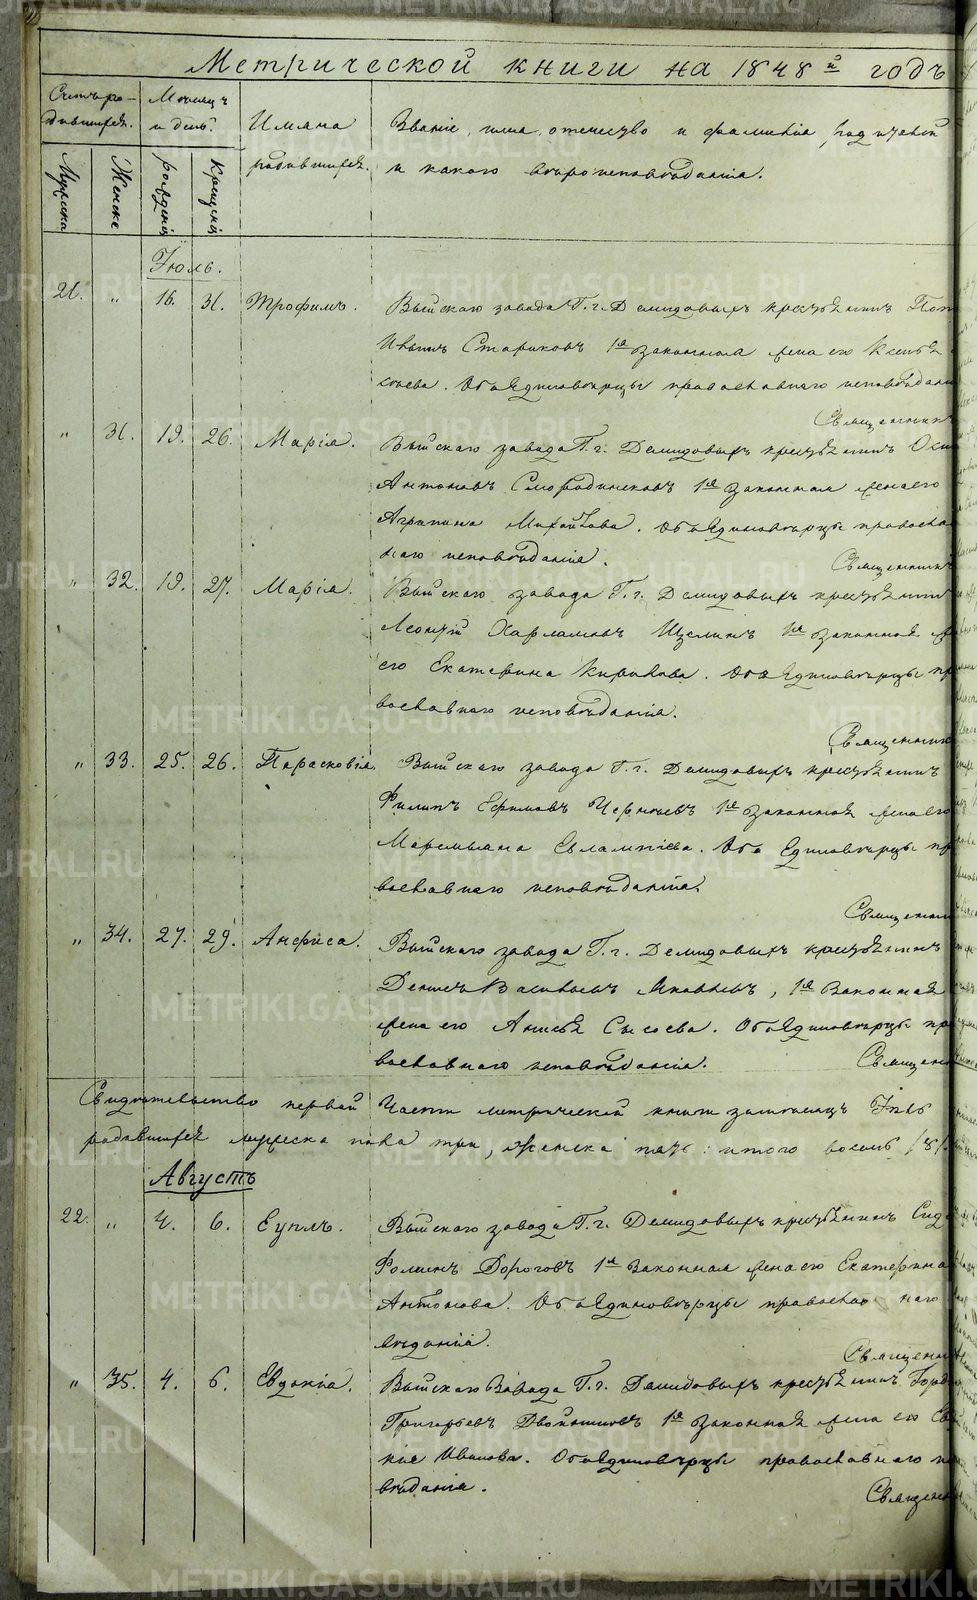 Метрической книги на 1848й годъ
Счетъ ро- Месяцъ
дившихся. и день. Имяна Званіе, имя, отечество и фамилія родителей
родившихся. и какого вѣроисповѣданія.
Мужска Женска рожденія крещенія
Іюль.
21. " 16. 31. Трофимъ. Выйскаго завода Г. г. Демидовыхъ крестьянинъ
Стариковъ 1я законная жена его
Оба Единовѣрцы православнаго исповѣдан
Священник
" 31. 19. 26. Марія. Выйскаго завода Г. г. Демидовыхъ крестьянинъ
Антоновъ Смородинсковъ 1я законная жена его
Агрипина Михайлова. Оба Единовѣрцы правосла
наго исповѣданія. Священник
" 32. 19. 27. Марія. Выйскаго завода Г. г. Демидовыхъ крестьянин
Леонтій Харламовъ 1я законная ж
его Екатерина Кирилова. Оба Единовѣрцы пр
вославнаго исповѣданія.
Священник
" 33. 25. 26. Парасковія Выйскаго завода Г. г. Демидовыхъ крестьянинъ
Филипъ Ефимовъ 1я законная жена его
Маремьяна Евлампіева. Оба Единовѣрцы пр
вославнаго исповѣданія.
Священ
" 34. 27. 29. Анфиса. Выйскаго завода Г. г. Демидовыхъ крестьянинъ
Денисъ Васильевъ Яковлевъ, 1я законная
жена его Анисья Сысоева. Оба Единовѣрцы пр
вославнаго исповѣданія. Священ
Свидѣтельство первой Части метрической книги
родившихся мужеска пола три, женска пять: итого восемь /8/.
Августъ
22. " 4. 6. Еуплъ. Выйскаго завода Г. г. Демидовыхъ крестьянинъ
Фоминъ Дороговъ 1я законная жена его Екатерина
Антонова. Оба Единовѣрцы православ наго
вѣданія.
Священ
" 35. 4. 6. Евдокіа. Выйскаго Завода Г. г. Демидовыхъ крестьянинъ
Григорьевъ 1я законная жена его
Иванова. Оба Единовѣрцы православнаго
вѣданія. Священ